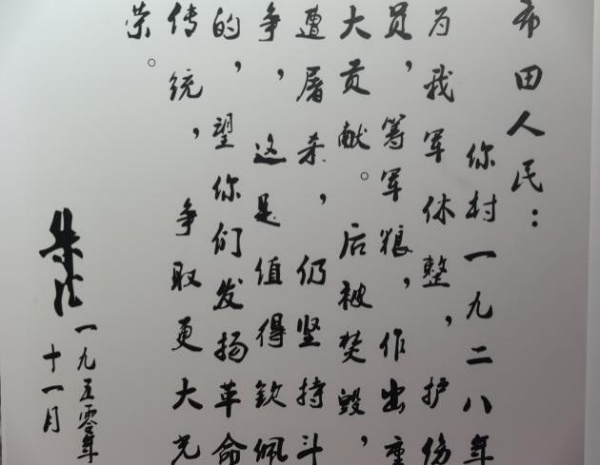 布田人民：
你村一九二八年
为我军休整，护伤
员，筹军粮，作出重
大贡献。后被焚毁，
遭屠杀，仍坚持斗
争，这是值得钦佩
的，望你们发扬革命
传统，争取更大光
荣。
朱德
一九五零年
十一月